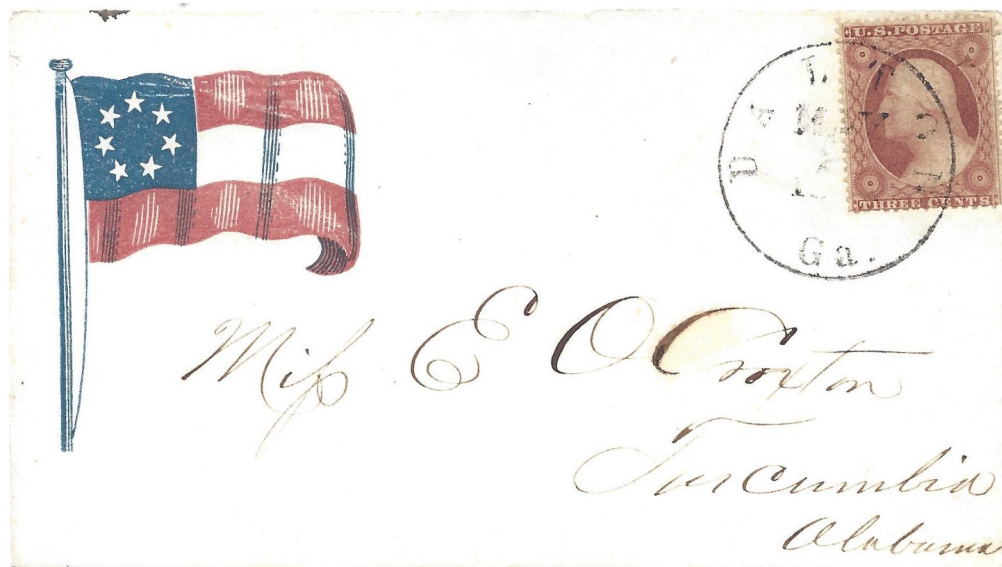 U.S. POSTAGE
THREE CENTS
DALTON
Ga.
Miſs E O Croxton
Tuscumbia
Alabama